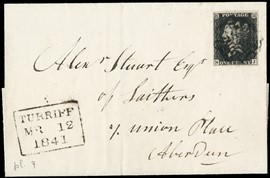 POSTAGE
ONE PENNY
Alexr Stuart Esqr
of Laithers
7 Union Place
Aberdeen
TURRIFF
MR 12
1841
pl. 9